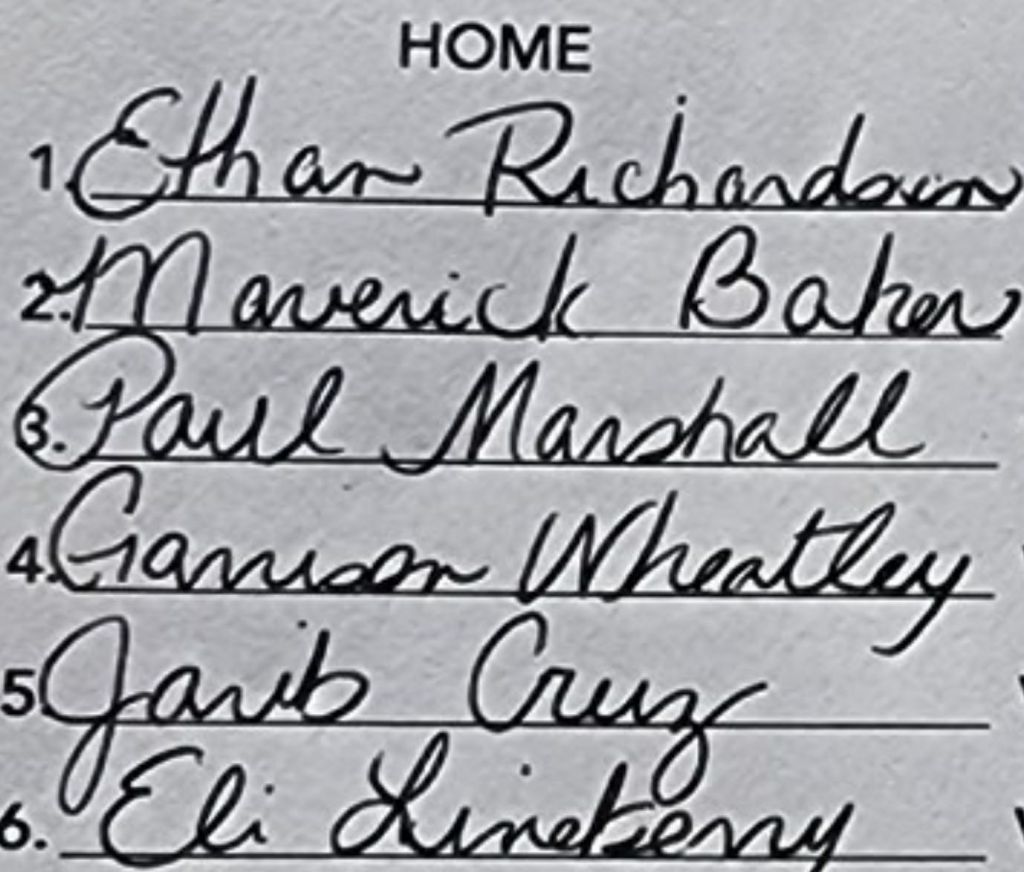 HOME
1. Ethan Richardson
2. Maverick Baker
3. Paul Marshall
4. Garrison Wheatley
5 Jarib Cruz
6. Eli Lineberry